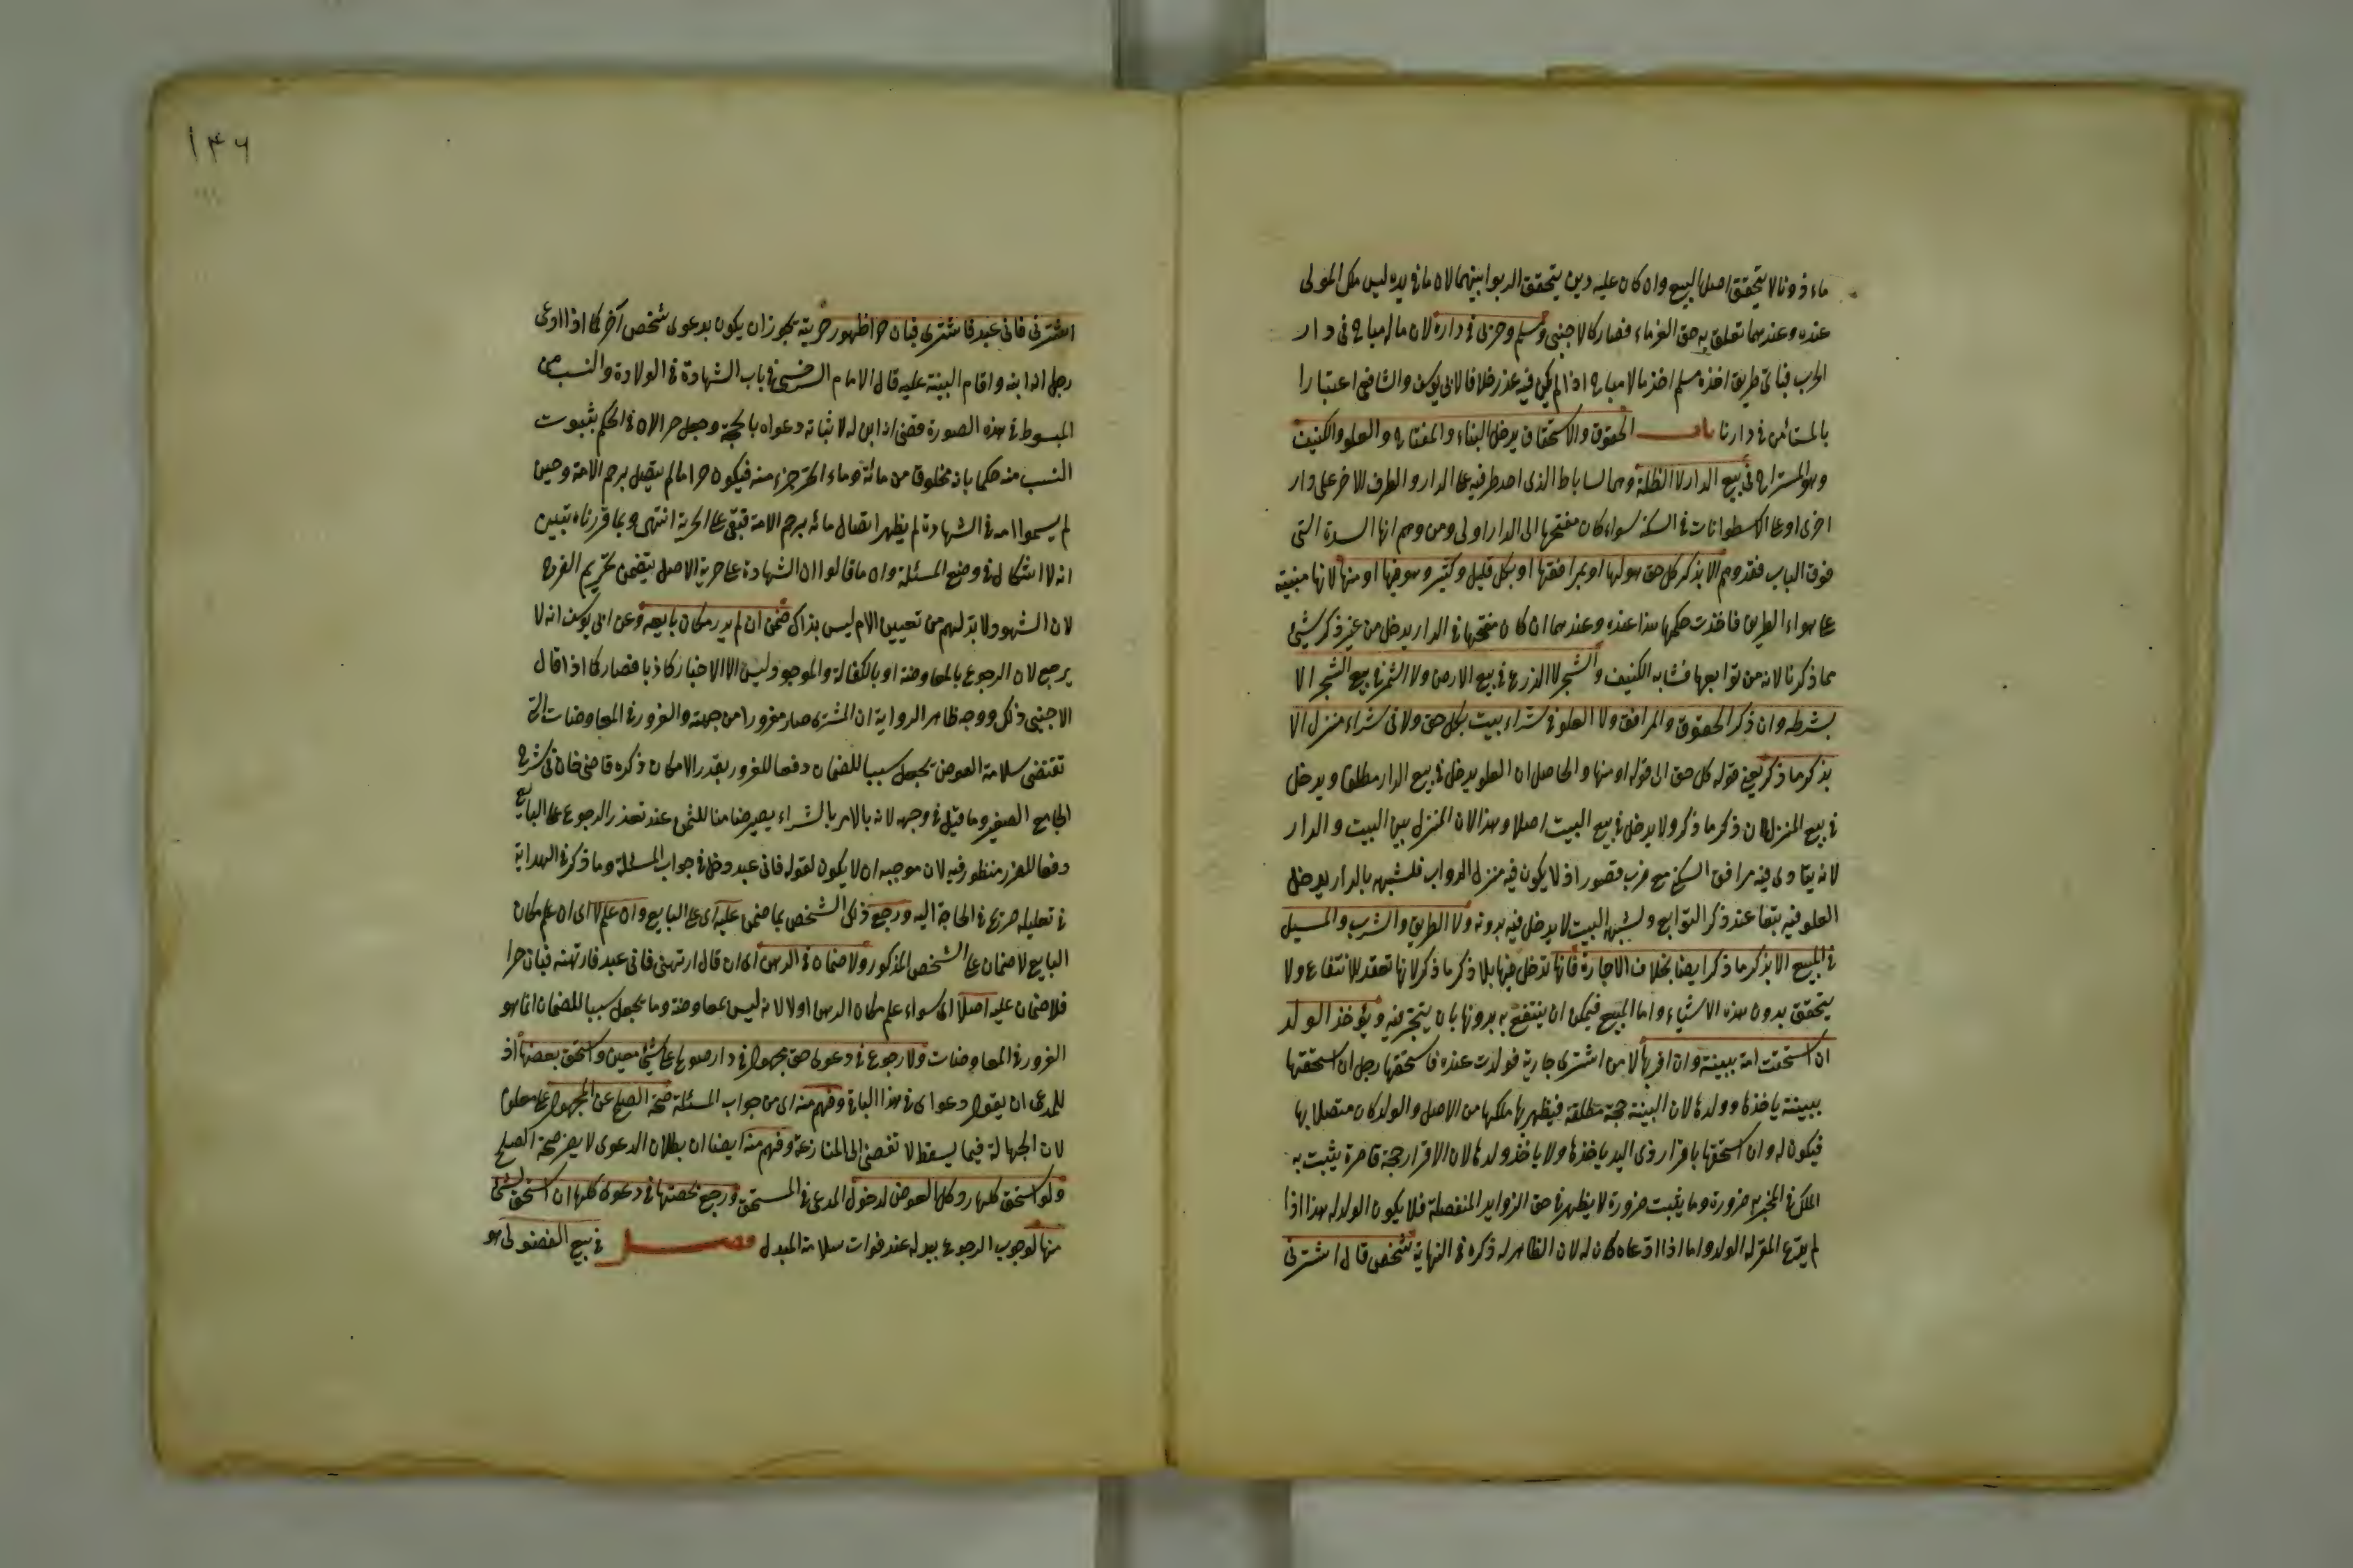 ماءذونا لا يتحقق اصلا البيع وان كان عليه دين يتحقق الربوا بينهما لان ما فى يده ليس ملك المولى
عنده وعندهما تعلق به حق الغرماء فصار كالاجنبى ومسلم وحربى فى داره لان ماله مباح فى دار
الحرب فباى طريق اخذه مسلم اخذ مالا مباحا اذا لم يكن فيه عذر خلافا لابى يوسف والشافعى اعتبارا
بالمستأمن فى دارنا باب الحقوق والاستحقاق يدخل البناء والمفتاح والعلو والكنيف
وهو المستراح فى بيع الدار لا الظلة وهى الساباط الذى احد طرفيه على الدار والطرف الاخر على دار
اخرى او على الاسطوانات فى السكة سواء كان مفتحها الى الدار اولى ومن وهم انها السدة التى
فوق الباب فقد وهم الا بذكر كل حق هو لها او بمرافقها او بكل قليل وكثير هو فيها او منها لانها مبنية
على هواء الطريق فاخذت حكمها هذا عنده وعندهما ان كان مفتحها فى الدار يدخل من غير ذكر شئ
مما ذكرنا لانه من توابعها فشابه الكنيف والشجر لا الزرع فى بيع الارض ولا الثمر فى بيع الشجر الا
بشرطه وان ذكر الحقوق والمرافق ولا العلو فى شراء بيت بكل حق ولا فى شراء منزل الا
بذكر ما ذكر يعنى قوله كل حق الى قوله او منها والحاصل ان العلو يدخل فى بيع الدار مطلقا ويدخل
فى بيع المنزل ان ذكر ما ذكر ولا يدخل فى بيع البيت اصلا وهذا لان المنزل بين البيت والدار
لانه يتأدى فيه مرافق السكنى مع ضرب قصور اذ لا يكون فيه منزل الدواب فلشبهه بالدار يدخل
العلو فيه تبعا عند ذكر التوابع ولشبهه البيت لا يدخل فيه بدونه ولا الطريق والشرب والمسيل
فى المبيع الا بذكر ما ذكر ايضا بخلاف الاجارة فانها تدخل فيها بلا ذكر ما ذكر لانها تعقد للانتفاع ولا
يتحقق بدون هذه الاشياء واما المبيع فيمكن ان ينتفع به بدونها بان يتجر فيه ويؤخذ الولد
ان استحقت امة ببينة وان اقر بها لا من اشترى جارية فولدت عنده فاستحقها رجل ان استحقها
ببينة ياخذها وولدها لان البينة حجة مطلقة فيظهر بها ملكها من الاصل والولد كان متصلا بها
فيكون له وان استحقها باقرار ذى اليد ياخذها ولا ياخذ ولدها لان الاقرار حجة قاصرة يثبت به
الملك فى المخبر به ضرورة وما يثبت ضرورة لا يظهر فى حق الزوايد المنفصلة فلا يكون الولد له هذا اذا
لم يدّع المقر له الولد واما اذا ادّعاه كان له لان الظاهر له ذكره فى النهاية شخص قال اشترنى
اشترنى فانى عبد فاشترى فبان حرا ظهور حريته يجوز ان يكون بدعوى شخص آخر كما اذا ادعى
رجل انه ابنه واقام البينة عليه قال الامام السرخسى فى باب الشهادة فى الولادة والنسب من
المبسوط فى هذه الصورة قضى انه ابن له لاثباته دعواه بالحجة وجعل حرا لان فى الحكم بثبوت
النسب منه حكما بانه مخلوقا من مائه وماء الحر جزء منه فيكون حرا ما لم يتصل برحم الامة وحين
لم يسموا امه فى الشهادة لم يظهر اتصال مائه برحم الامة فبقى على الحرية انتهى وبما قررناه تبين
انه لا اشكال فى وضع المسئلة وان ما قالوا ان الشهادة على حرية الاصل يتضمن تحريم الفرج
لان الشهود لا بد لهم من تعيين الام ليس بذاك ضمن ان لم يدر مكان بايعه وعن ابى يوسف انه لا
يرجع لان الرجوع بالمعاوضة او بالكفالة والموجود ليس الا الاخبار كاذبا فصار كما اذا قال
الاجنبى ذلك ووجه ظاهر الرواية ان المشترى صار مغرورا من جهته والغرور فى المعاوضات التى
تقتضى سلامة العوض يجعل سببا للضمان دفعا للغرور بقدر الامكان ذكره قاضى خان فى شرح
الجامع الصغير وما قيل فى وجهه لانه بالامر بالشراء يصير ضامنا للثمن عند تعذر الرجوع على البايع
دفعا للغرر منظور فيه لان موجبه ان لا يكون لقوله فانى عبد دخل فى جواب المسئلة وما ذكر فى الهداية
فى تعليله صريح فى الحاجة اليه ورجع ذلك الشخص بما ضمن عليه اى على البايع وان علم لا اى ان علم مكان
البايع لا ضمان على الشخص المذكور ولا ضمان فى الرهن اى ان قال ارتهنى فانى عبد فارتهنه فبان حرا
فلا ضمان عليه اصلا اى سواء علم مكان الرهن او لا لانه ليس بمعاوضة وما يجعل سببا للضمان انما هو
الغرور فى المعاوضات ولا رجوع فى دعوى حق مجهول فى دار صولح على شئ معين واستحق بعضها اذ
للمدعى ان يقول دعواى فى هذا الباقى وفهم منه اى من جواب المسئلة صحة الصلح عن المجهول على معلوم
لان الجهالة فيما يسقط لا تفضى الى المنازعة وفهم منه ايضا ان بطلان الدعوى لا يضر صحة الصلح
ولو استحق كلها رد كل العوض لدخول المدعى فى المستحق ورجع بحصتها فى دعوى كلها ان استحق شئ
منها لوجوب الرجوع ببدله عند فوات سلامة المبدل فصل فى بيع الفضولى هو
١۴۶